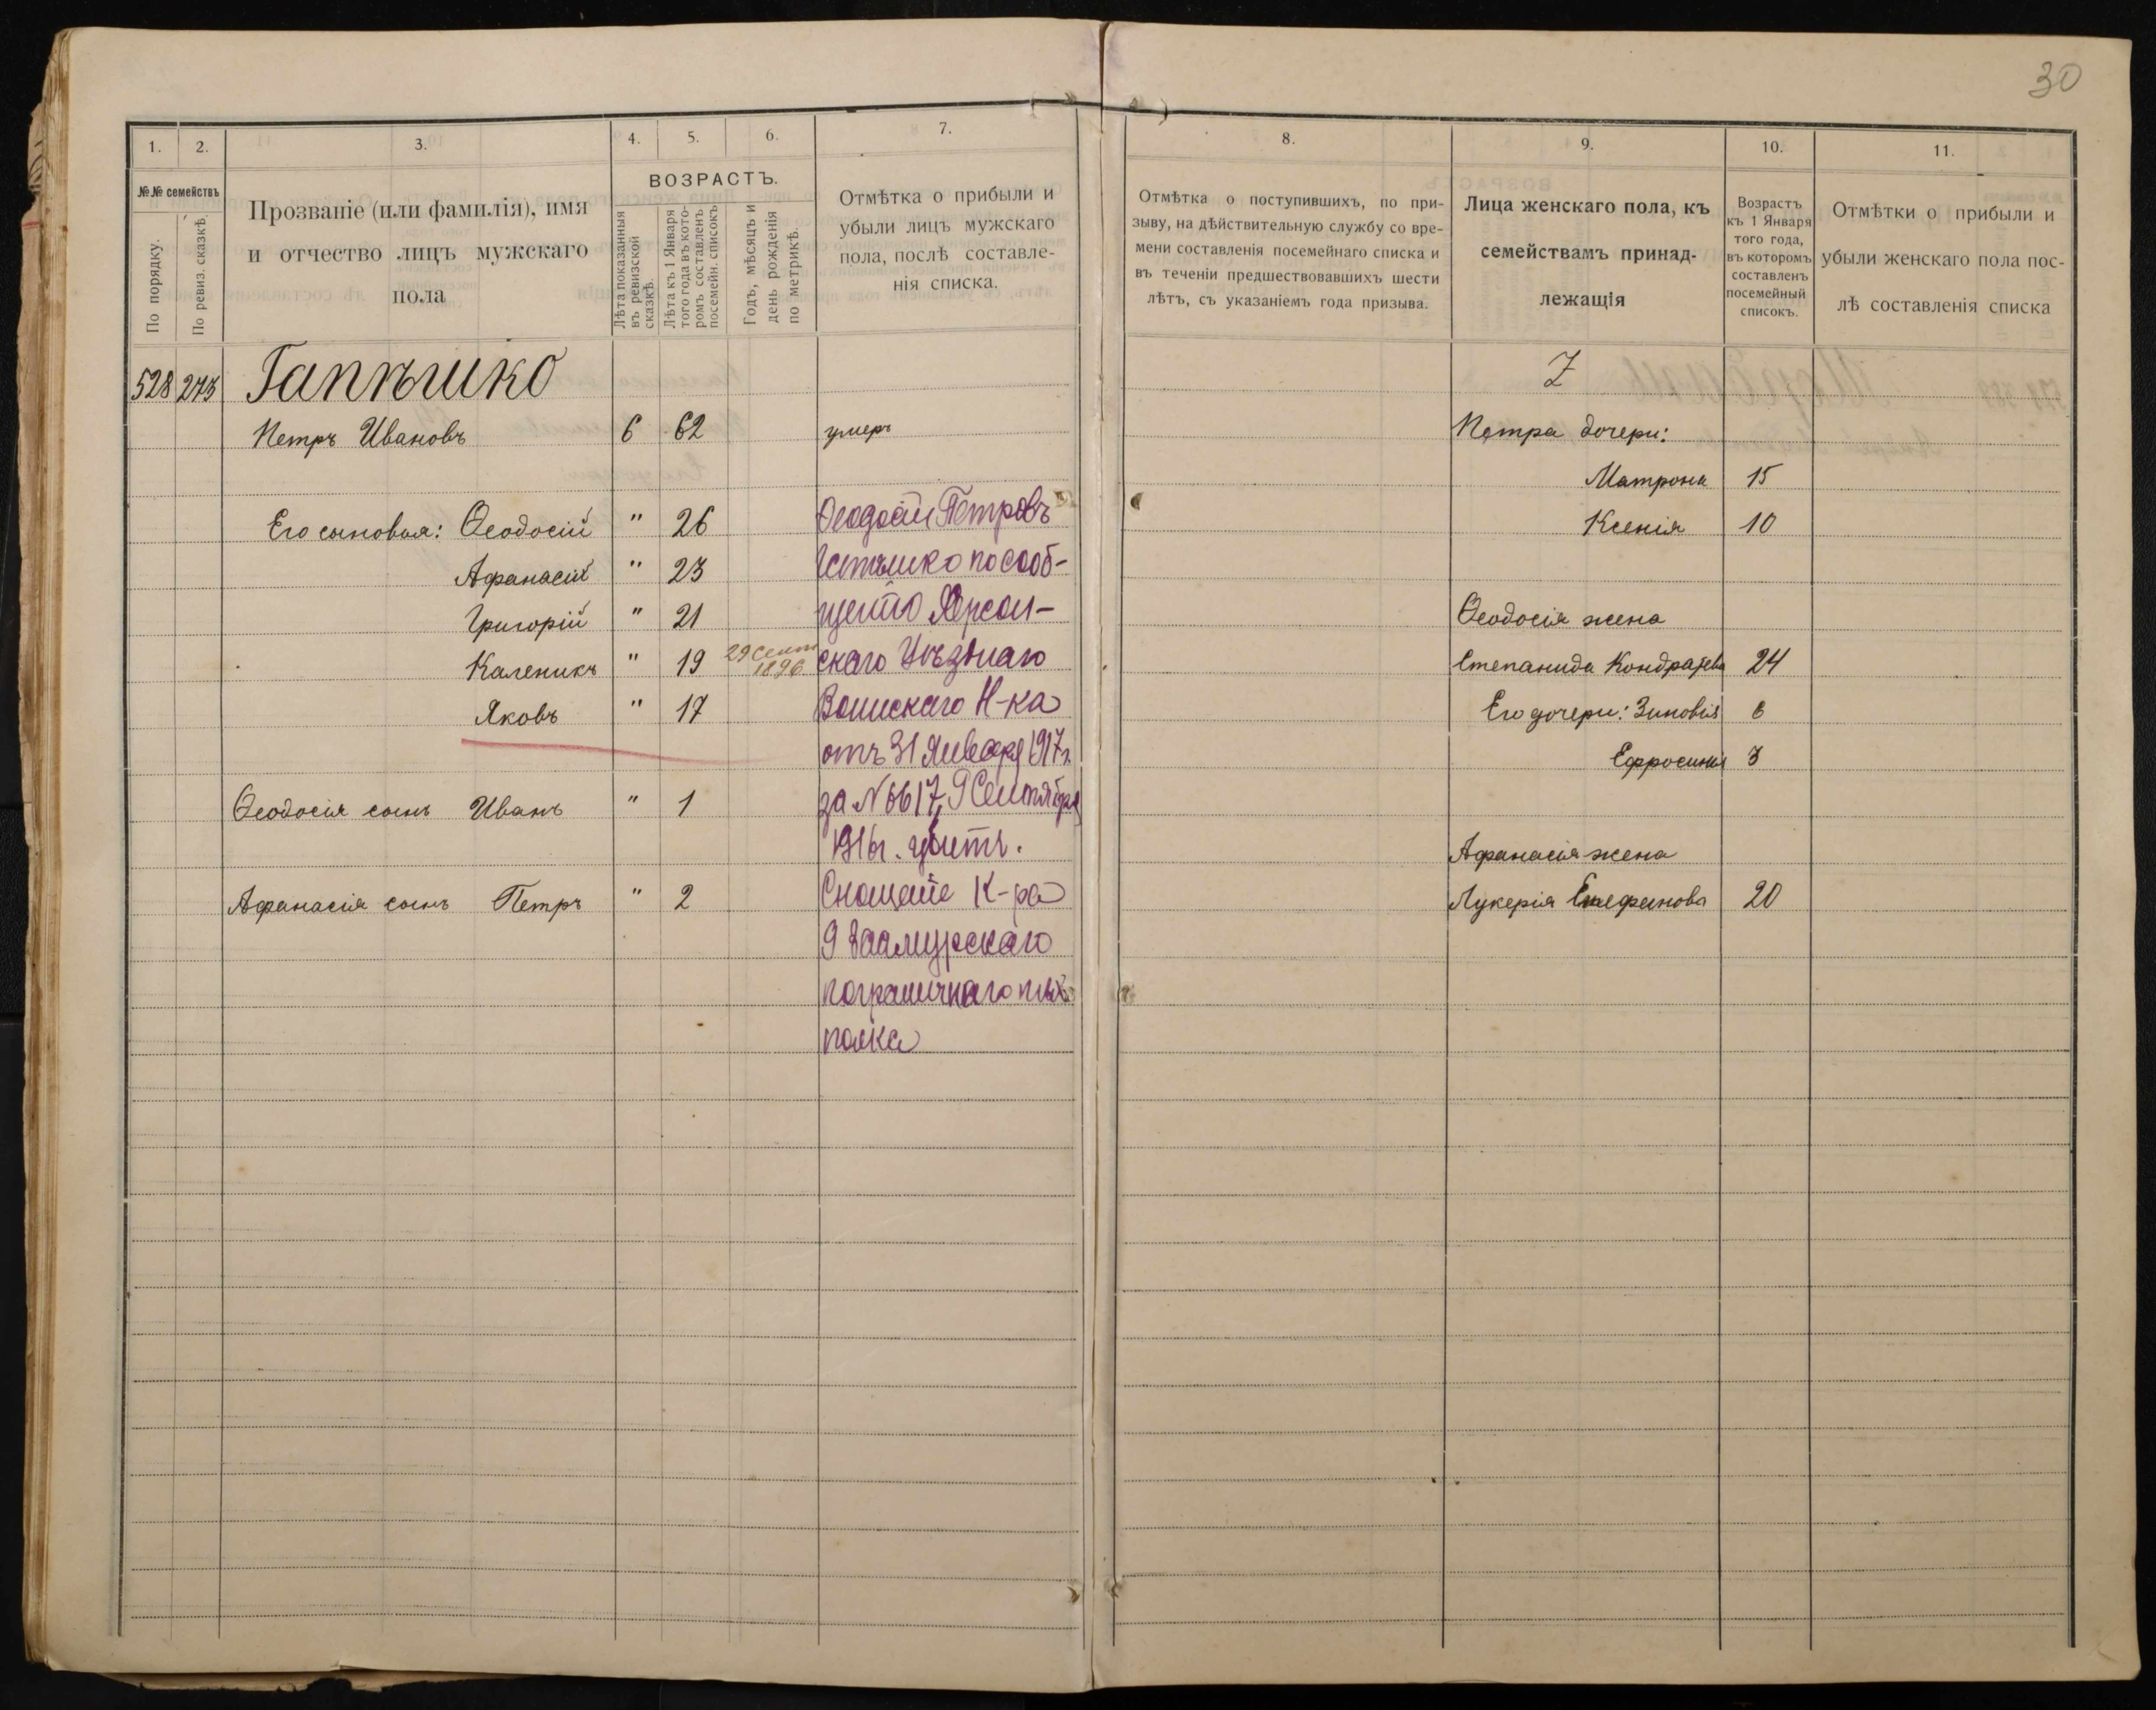 30
1. 2. 3. 4. 5. 6. 7.
№№ семействъ
По порядку.
По ревиз. сказкѣ.
Прозваніе (или фамилія), имя
и отчество лицъ мужскаго
пола
ВОЗРАСТЪ.
Лѣта показанныя
въ ревизской
сказкѣ.
Лѣта къ 1 Января
того года въ кото-
ромъ составленъ
посемейн. списокъ
Годъ, мѣсяцъ и
день рожденія
по метрикѣ.
Отмѣтка о прибыли и
убыли лицъ мужскаго
пола, послѣ составле-
нія списка.
528 273 Гапѣшко
Петръ Ивановъ 6 62 умеръ
Его сыновья: Ѳеодосій " 26 Ѳеодосій Петровъ
Афанасій " 23 по сооб-
Григорій " 21 щенію Херсон-
Каленикъ " 19 29 Сент 1896 скаго Уѣзднаго
Яковъ " 17 Воинскаго Н-ка
отъ 31 Января 1917 г.
Ѳеодосія сынъ Иванъ " 1 за № 6617, 9 Сентября
1916 г. убитъ.
Афанасія сынъ Петръ " 2 Сношеніе К-ра
9 Заамурскаго
пограничнаго
полка
8. 9. 10. 11.
Отмѣтка о поступившихъ, по при-
зыву, на дѣйствительную службу со вре-
мени составленія посемейнаго списка и
въ теченіи предшествовавшихъ шести
лѣтъ, съ указаніемъ года призыва.
Лица женскаго пола, къ
семействамъ принад-
лежащія
Возрастъ
къ 1 Января
того года,
въ которомъ
составленъ
посемейный
списокъ.
Отмѣтки о прибыли и
убыли женскаго пола пос-
лѣ составленія списка
Петра дочери:
Матрона 15
Ксенія 10
Ѳеодосія жена
Степанида Кондратьева 24
Его дочери: Зиновія 6
Ефросинія 3
Афанасія жена
Лукерія 20